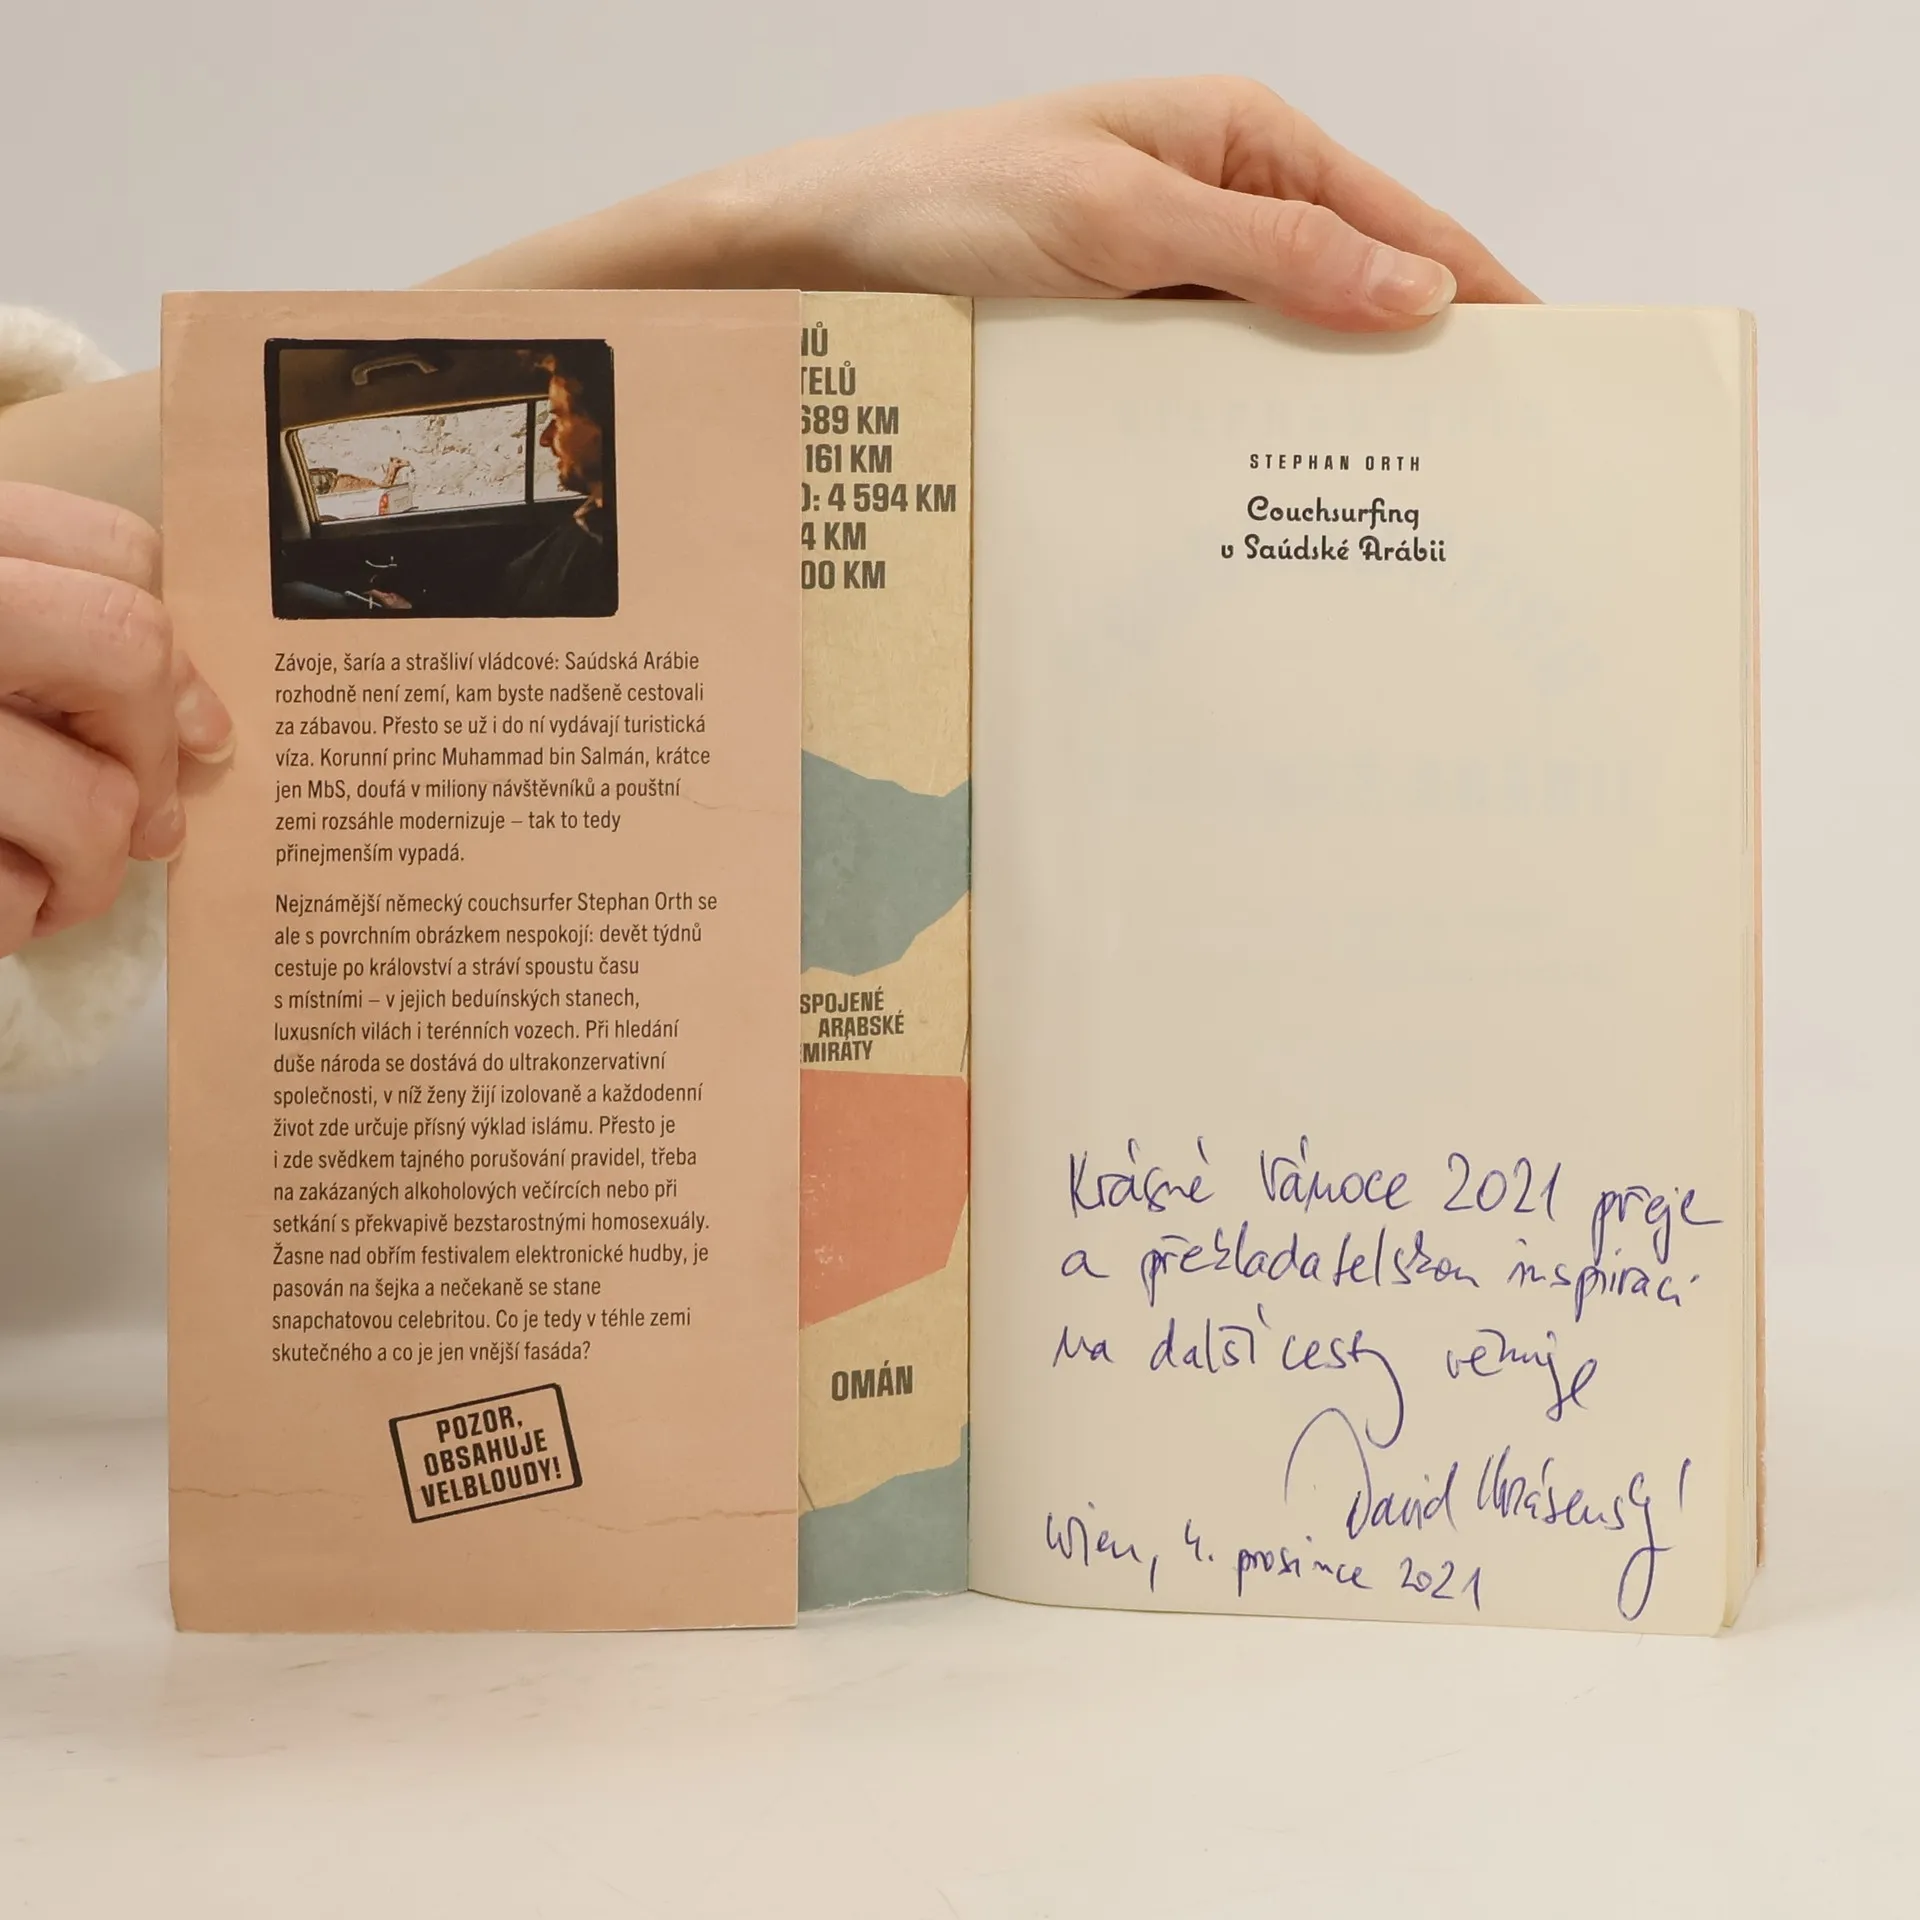 Závoje, šaría a strašliví vládcové: Saúdská Arábie
rozhodně není zemí, kam byste nadšeně cestovali
za zábavou. Přesto se už i do ní vydávají turistická
víza. Korunní princ Muhammad bin Salmán, krátce
jen MbS, doufá v miliony návštěvníků a pouštní
zemi rozsáhle modernizuje – tak to tedy
přinejmenším vypadá.
Nejznámější německý couchsurfer Stephan Orth se
ale s povrchním obrázkem nespokojí: devět týdnů
cestuje po království a stráví spoustu času
s místními – v jejich beduínských stanech,
luxusních vilách i terénních vozech. Při hledání
duše národa se dostává do ultrakonzervativní
společnosti, v níž ženy žijí izolovaně a každodenní
život zde určuje přísný výklad islámu. Přesto je
i zde svědkem tajného porušování pravidel, třeba
na zakázaných alkoholových večírcích nebo při
setkání s překvapivě bezstarostnými homosexuály.
Žasne nad obřím festivalem elektronické hudby, je
pasován na šejka a nečekaně se stane
snapchatovou celebritou. Co je tedy v téhle zemi
skutečného a co je jen vnější fasáda?
POZOR,
OBSAHUJE
VELBLOUDY!
NŮ
TELŮ
689 KM
161 KM
O: 4 594 KM
4 KM
00 KM
SPOJENÉ
ARABSKÉ
EMIRÁTY
OMÁN
STEPHAN ORTH
Couchsurfing
v Saúdské Arábii
Krásné Vánoce 2021 přeje
a překladatelskou inspiraci
na další cesty věnuje
David
Wien, 4. prosince 2021